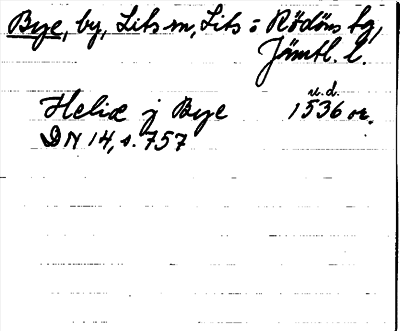 Bye, by, Lits sn, Lits o Rödöns tg,
Jämtl. l.
u.d.
Heliæ j Bye 1536 or.
DN 14, s. 757